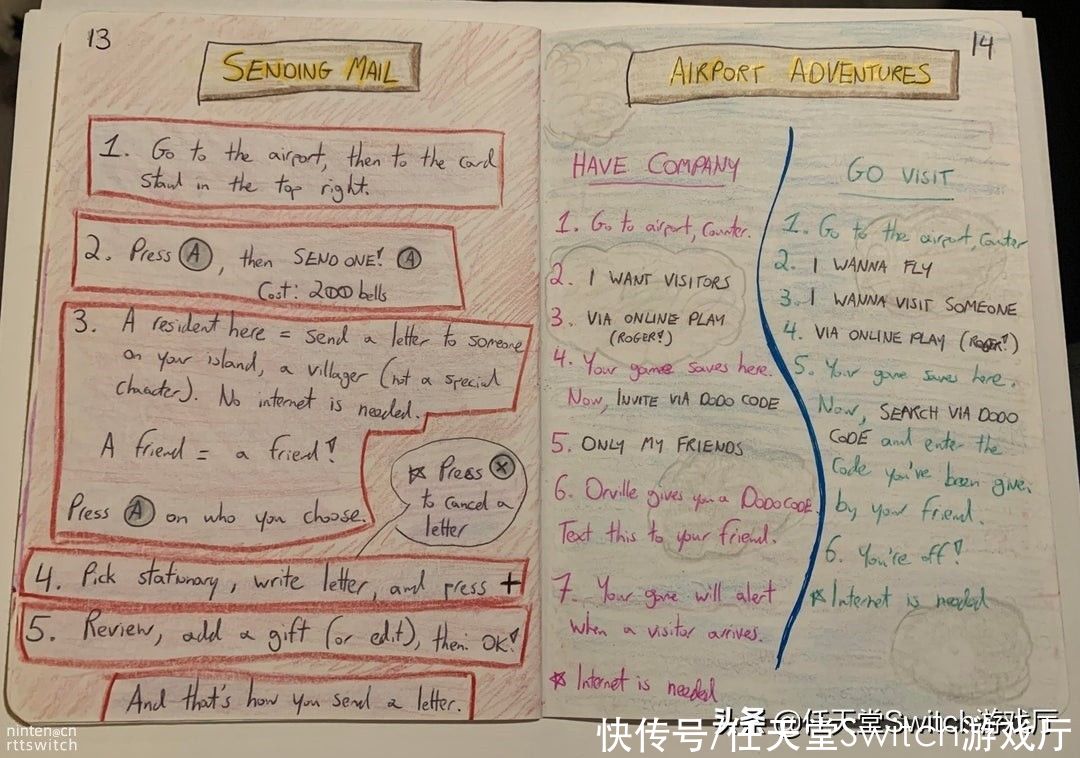 13
SENDING MAIL
1. Go to the airport, then to the card
stand in the top right.
2. Press A, then SEND ONE! A
Cost: 200 bells
3. A resident here = send a letter to someone
on your island, a villager (not a special
character). No internet is needed.
A friend = a friend!
Press A on who you choose.
☆ Press X
to cancel a
letter
4. Pick stationary, write letter, and press +
5. Review, add a gift (or edit), then: OK!
And that's how you send a letter.
14
AIRPORT ADVENTURES
HAVE COMPANY
1. Go to airport, counter.
2. I WANT VISITORS
3. VIA ONLINE PLAY
(ROGER!)
4. Your game saves here.
Now, INVITE VIA DODO CODE
5. ONLY MY FRIENDS
6. Orville gives you a DODO CODE.
Text this to your friend.
7. Your game will alert
when a visitor arrives.
☆ Internet is needed
GO VISIT
1. Go to the airport, counter
2. I WANNA FLY
3. I WANNA VISIT SOMEONE
4. VIA ONLINE PLAY (ROGER!)
5. Your game saves here.
Now, SEARCH VIA DODO
CODE and enter the
code you've been given
by your friend.
6. You're off!
☆ Internet is needed
ninten@cn
rttswitch
头条 @任天堂Switch游戏厅
快传号/任天堂Switch游戏厅